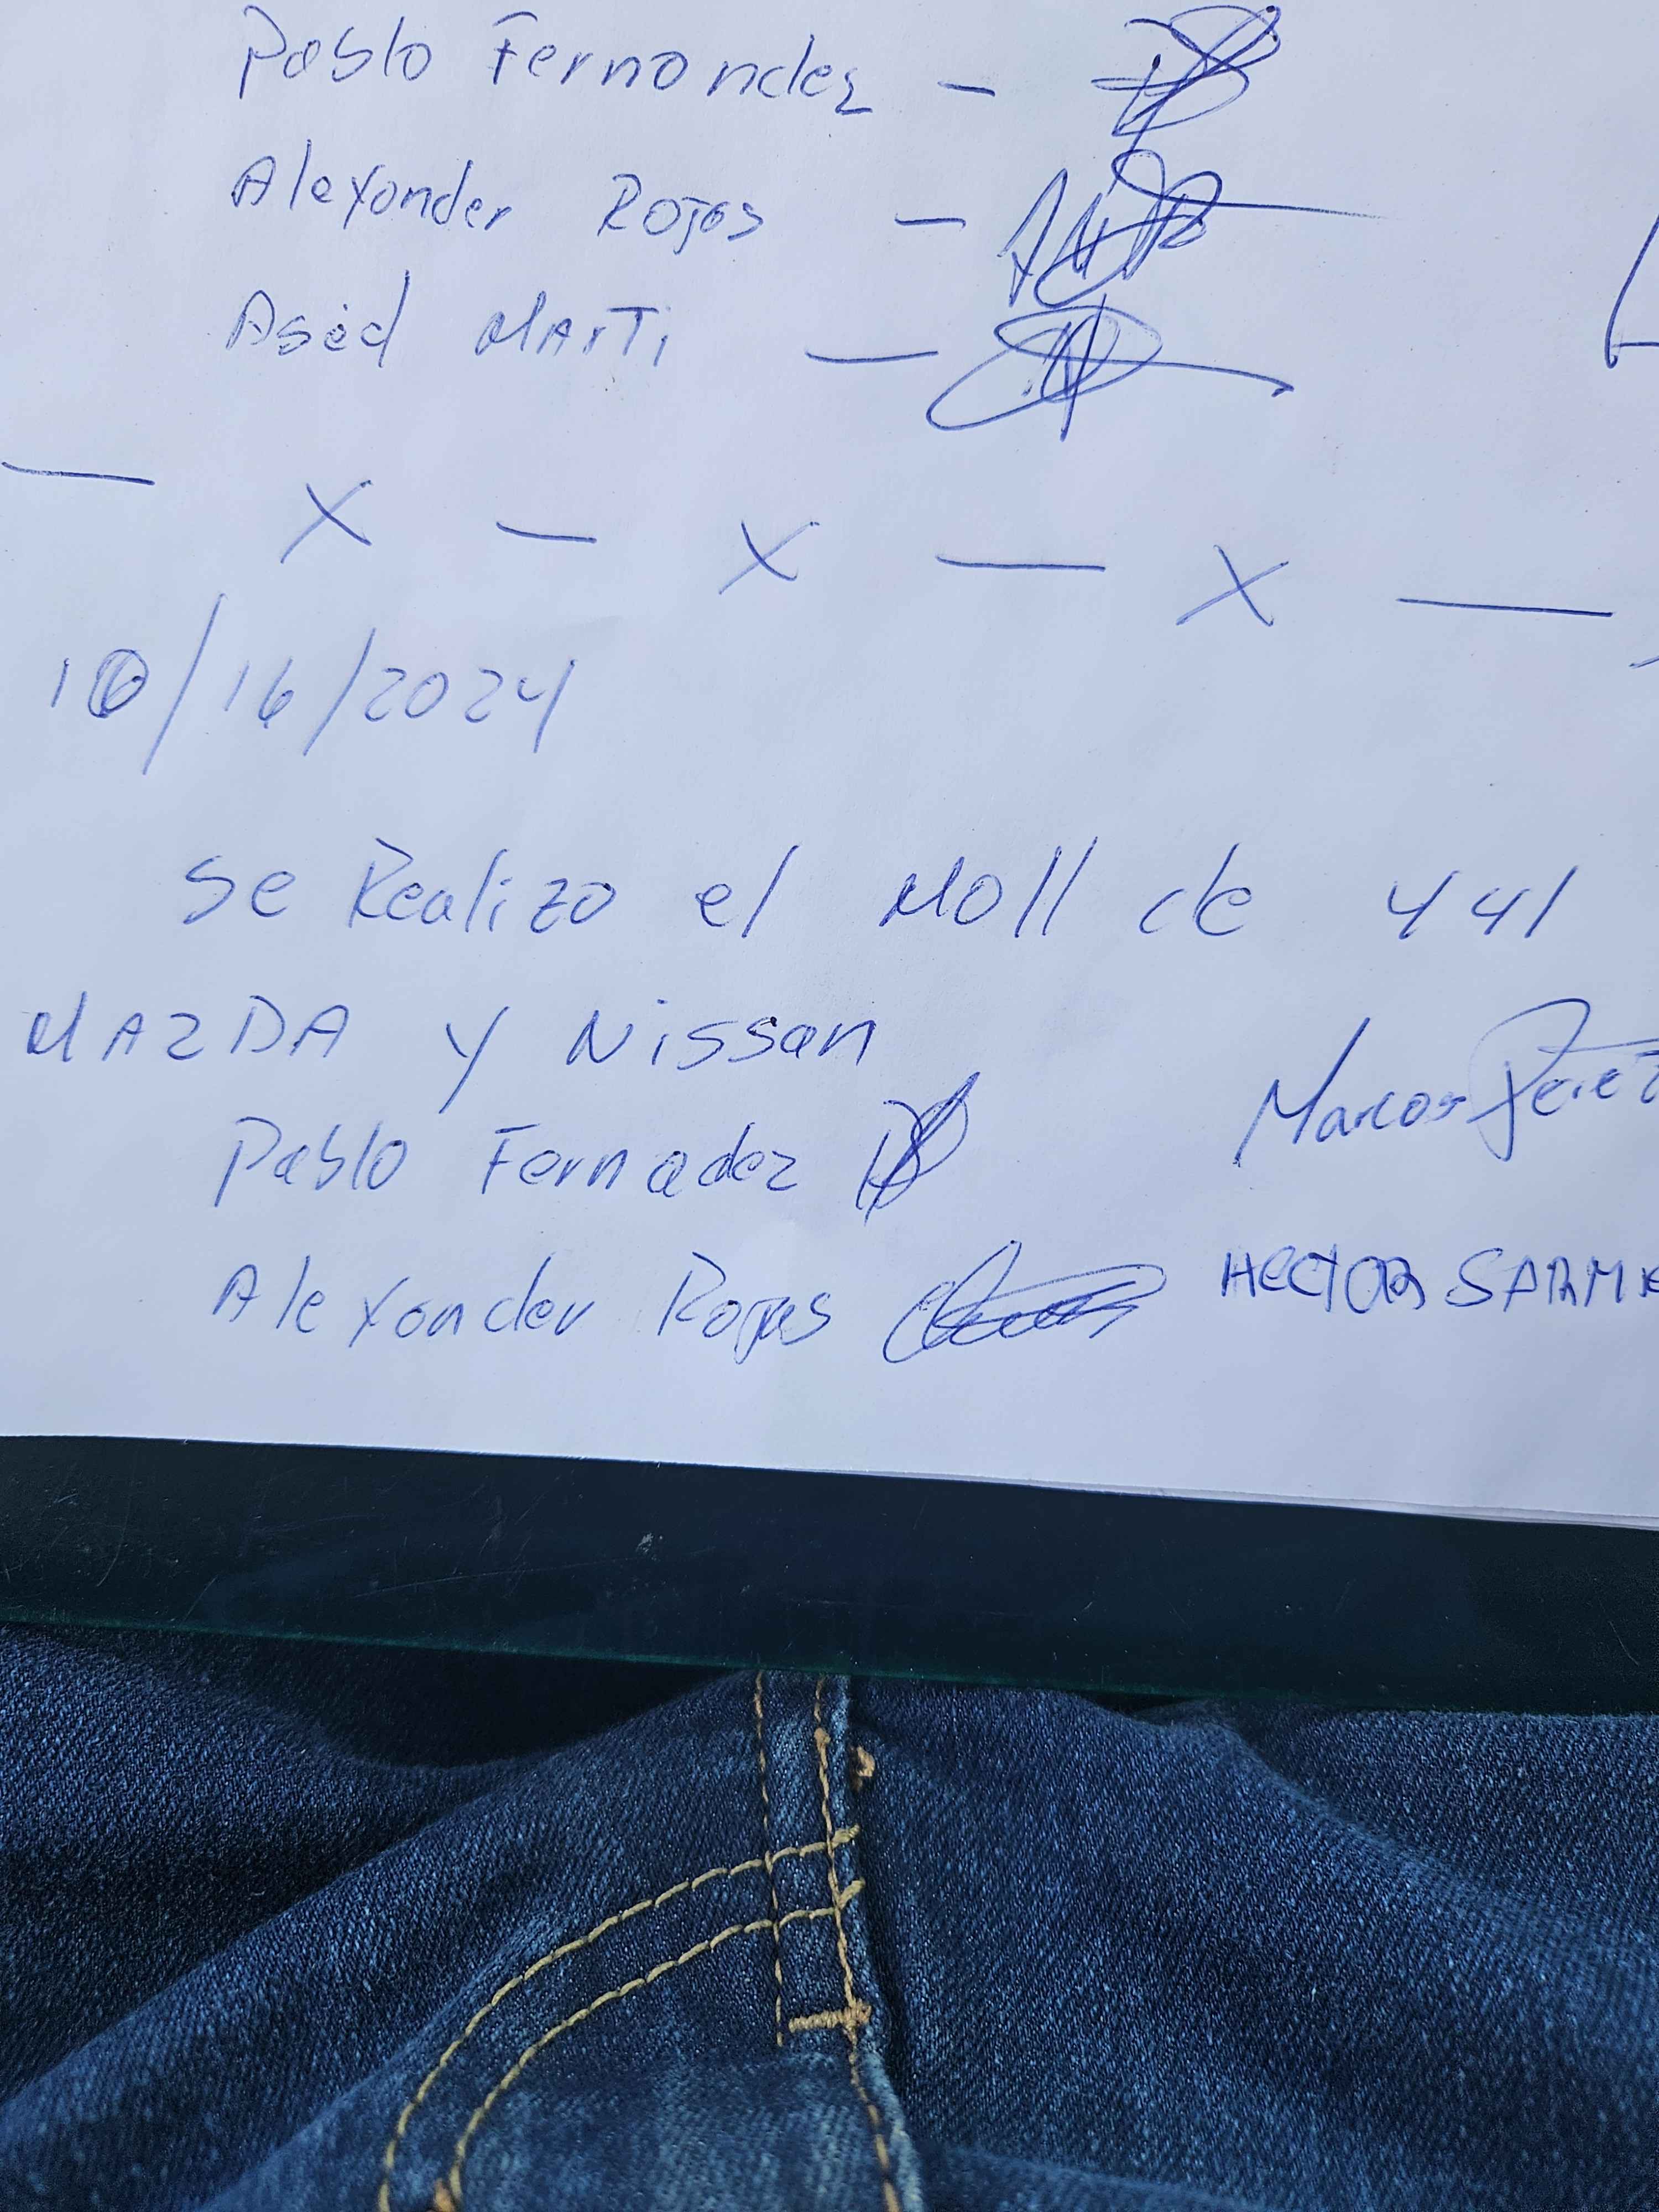 Pablo Fernandez -
Alexander Rojas -
Asèd MarTi -
- X - X - X -
10/16/2024
Se Realizo el Moll de 441
MAZDA y Nissan
Pablo Fernadez
Marcos Perez
Alexander Rojas
HECTOR SARMIE